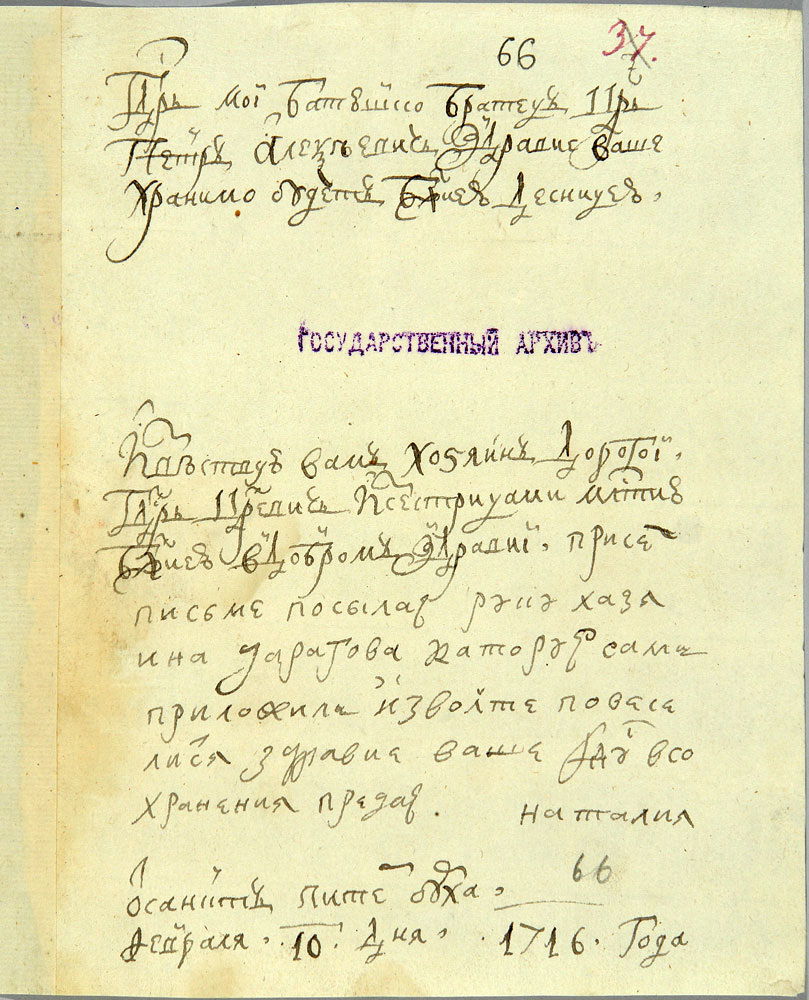 66 37.
Гдрь мої батюшко братецъ Црь
Петръ Алеѯѣевичь Здравие ваше
хранимо будетъ Бжиею десницею,
ГОСУДАРСТВЕННЫЙ АРХИВЪ
Извѣствую вамъ хозяинъ дорогої.
Гдрь Црвичь и сестрицами млстию
Бжиею въ добромъ здравиї. при се
писме посылаю руку хазя
ина дарагова каторую сама
приложила изволте повесе
лися здравие ваше Бгу в со
хранения предаю. Наталия
66
ѡ санктъ питеръ бурха,
Февраля. 10. дня, 1716. Года